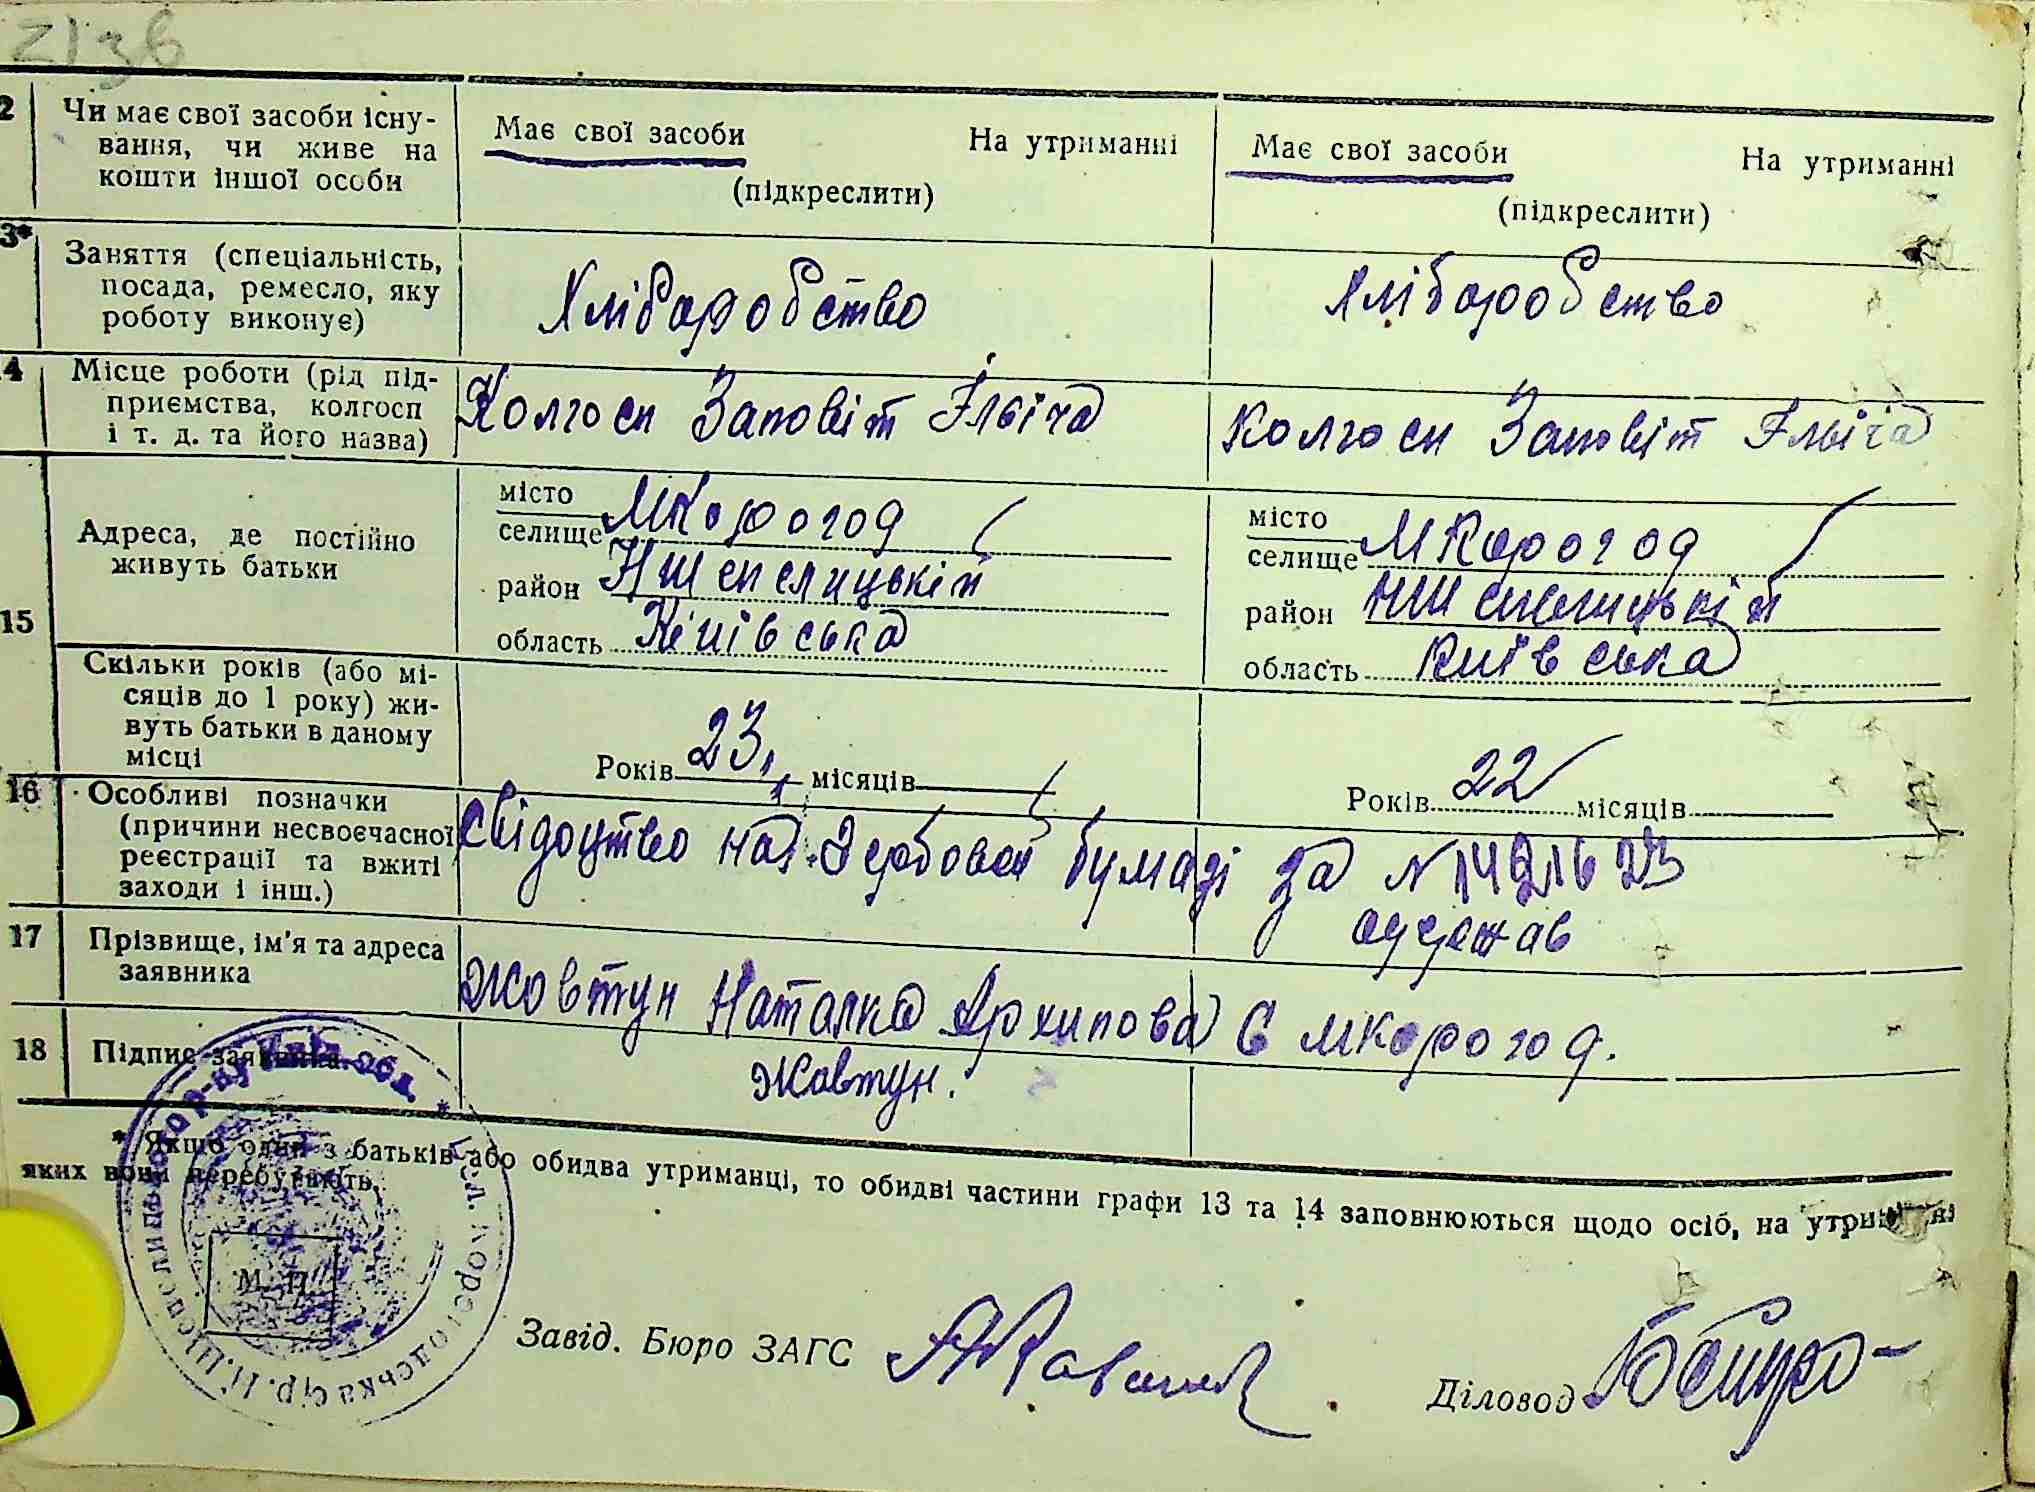 2136
2 Чи має свої засоби існу-
вання, чи живе на
кошти іншої особи
Має свої засоби На утриманні
(підкреслити)
Має свої засоби На утриманні
(підкреслити)
3* Заняття (спеціальність,
посада, ремесло, яку
роботу виконує)
Хліборобство
хліборобство
4 Місце роботи (рід під-
приємства, колгосп
і т. д. та його назва)
Колгосп Заповіт Ілвіча
Колгосп Заповіт Ілвіча
15
Адреса, де постійно
живуть батьки
місто
селище МКорогод
район НШепелицькій
область Київська
місто
селище МКорогод
район НШепелицькій
область Київська
Скільки років (або мі-
сяців до 1 року) жи-
вуть батьки в даному
місці
Років 23 місяців
Років 22 місяців
16 Особливі позначки
(причини несвоєчасної
реєстрації та вжиті
заходи і інш.)
Свідоцтво на Гербовой бумазі за №
одержав
17 Прізвище, ім'я та адреса
заявника
Жовтун Наталка Архипова С мкорогод.
18 Підпис заявника
Жовтун.
* Якщо один з батьків або обидва утриманці, то обидві частини графи 13 та 14 заповнюються щодо осіб, на утриманні
яких вони перебувають.
М. П.
Завід. Бюро ЗАГС
Діловод